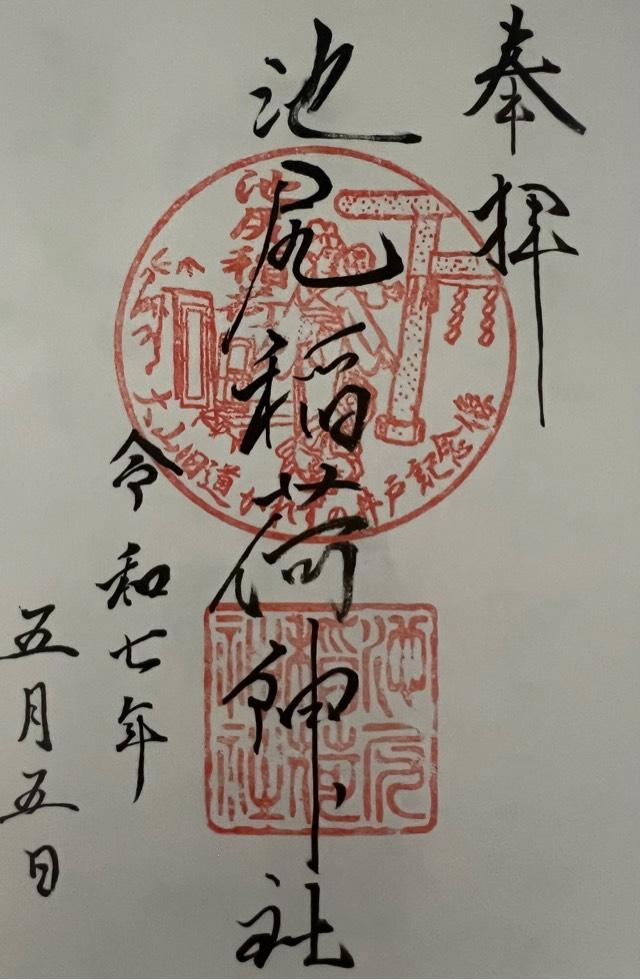 奉拝
池尻稲荷神社
令和七年
五月五日
池尻稲荷
大山旧道 かれずの井戸 記念像
池尻
稲荷
神社